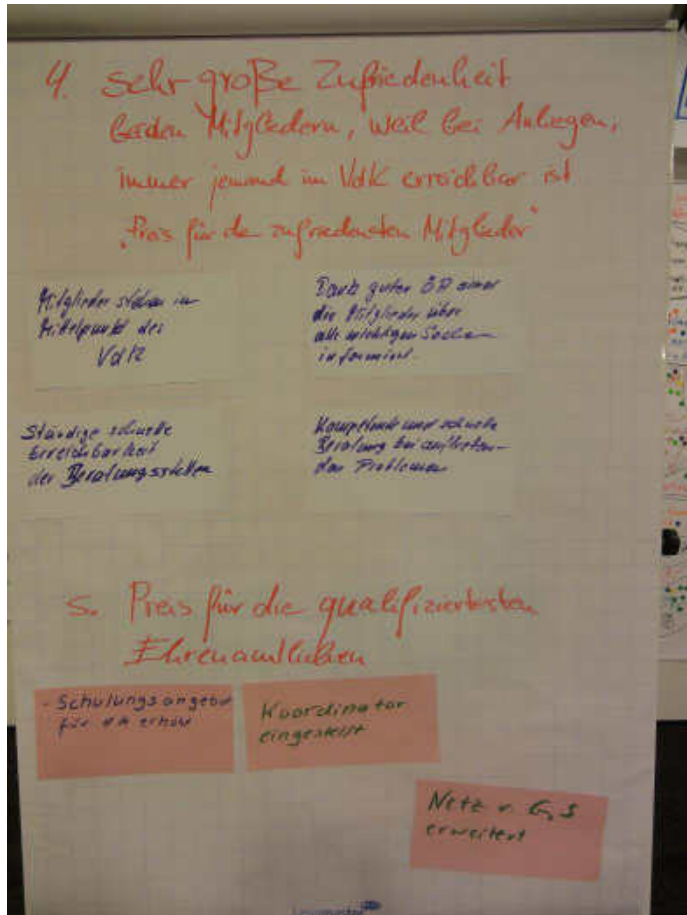 4. sehr große Zufriedenheit
bei den Mitgliedern, weil bei Anliegen,
immer jemand im VdK erreichbar ist
"Preis für die zufriedensten Mitglieder"
Mitglieder stehen im
Mittelpunkt des
VdK
Dank guter ÖA
die Mitglieder über
alle wichtigen Sachen
informiert.
Ständige schnelle
Erreichbarkeit
der Beratungsstellen
Kompetente und schnelle
Beratung bei auftreten-
den Problemen
5. Preis für die qualifiziertesten
Ehrenamtlichen
- Schulungsangebot
für EA erhöht
Koordinator
eingestellt
Netz v.
erweitert